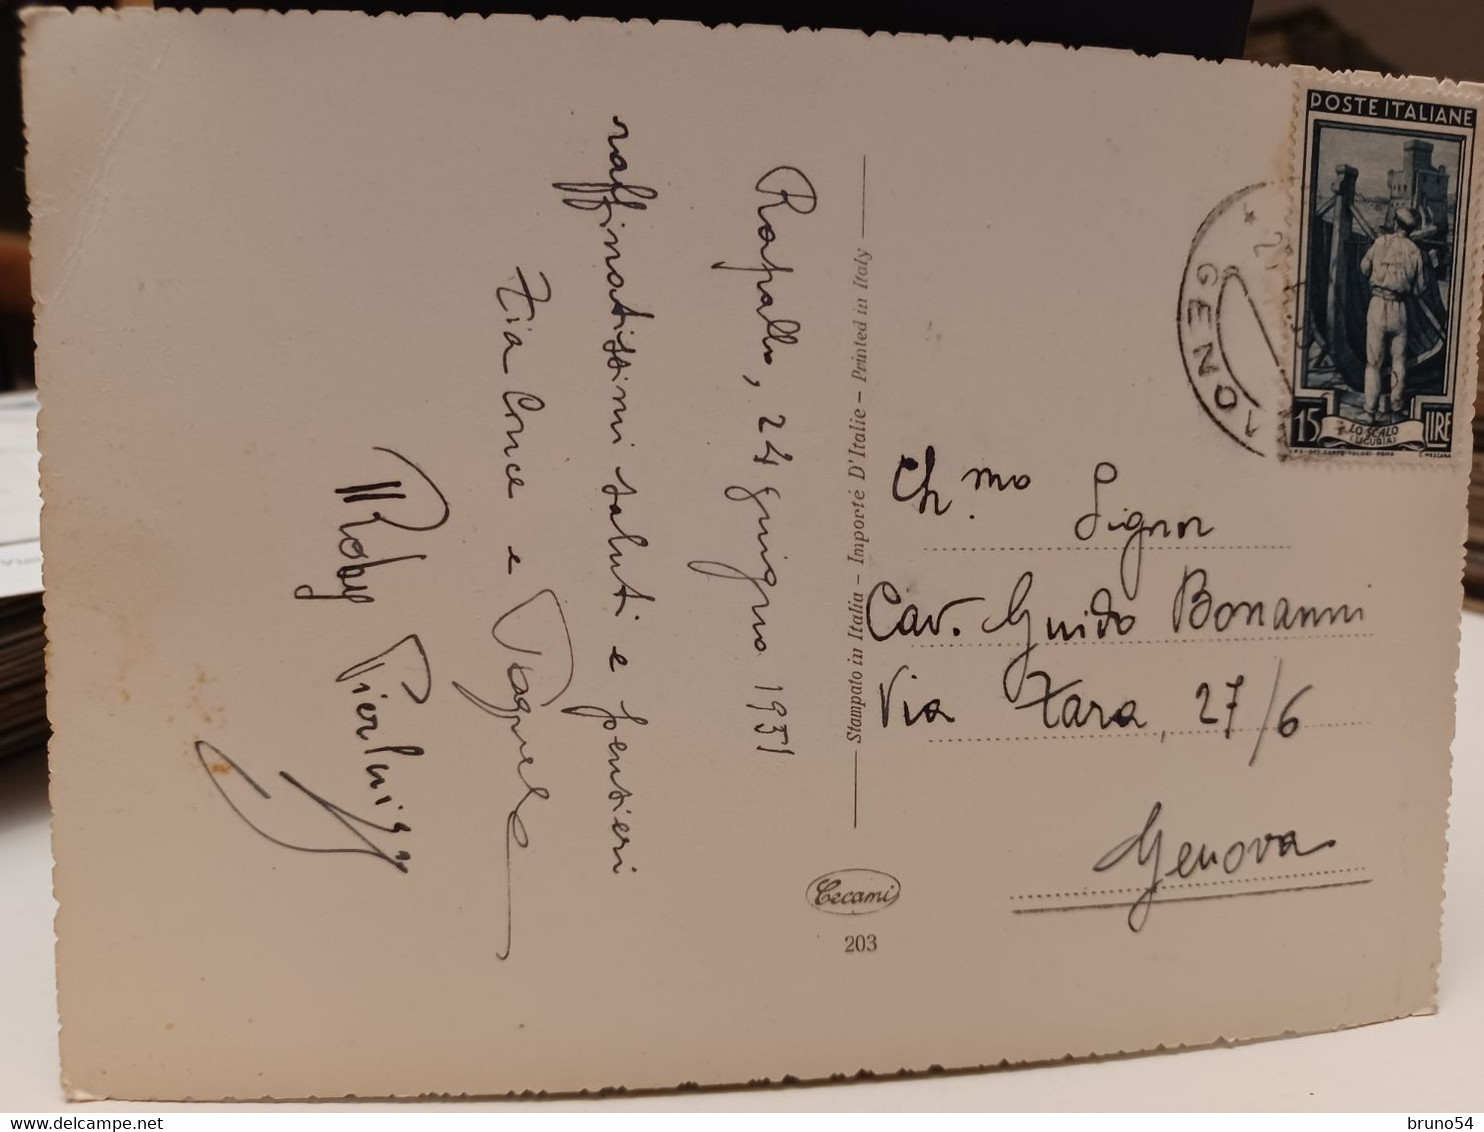 Rapallo, 24 giugno 1951
raffinatissimi saluti e pensieri
Zia Cnce e
Roby Pierluigi
Stampato in Italia – Importé D'Italie – Printed in Italy
Cecami
203
POSTE ITALIANE
15 LIRE
LO SCALO
(LIGURIA)
GENOVA
Ch.mo Signor
Cav. Guido Bonanni
Via Zara, 27/6
Genova
bruno54